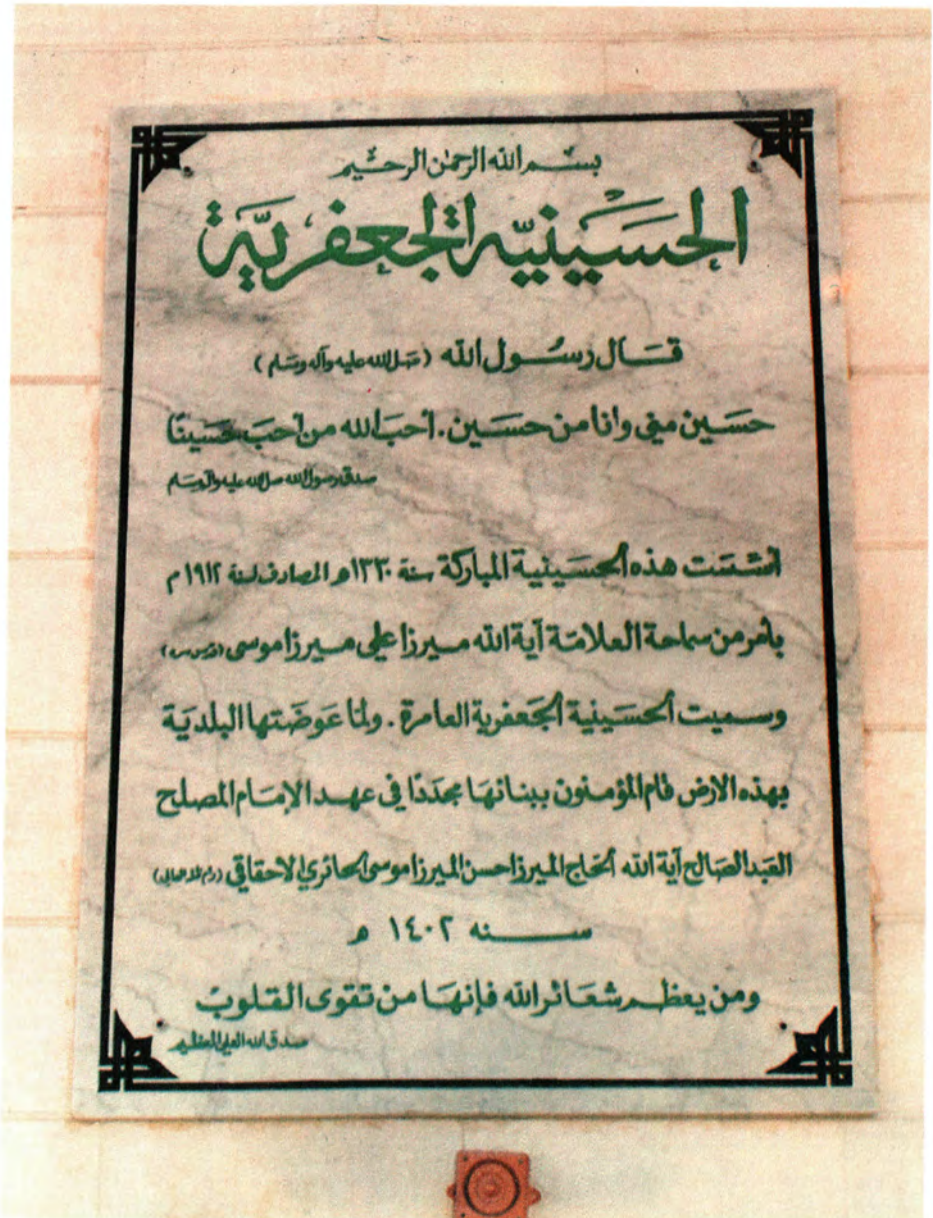 بسم الله الرحمن الرحيم
الحسينية الجعفرية
قال رسول الله (صلى الله عليه وآله وسلم)
حسين مني وانا من حسين. أحب الله من أحب حسينًا
صدق رسول الله صلى الله عليه وآله وسلم
أسست هذه الحسينية المباركة سنة ١٣٣٠هـ المصادف لسنة ١٩١٢م
بأمر من سماحة العلامة آية الله ميرزا علي ميرزا موسى
وسميت الحسينية الجعفرية العامرة. ولما عوضتها البلدية
بهذه الارض قام المؤمنون ببنائها مجددًا في عهد الإمام المصلح
العبد الصالح آية الله الحاج الميرزا حسن الميرزا موسى الحائري الاحقاقي
سنه ١٤٠٢ هـ
ومن يعظم شعائر الله فإنها من تقوى القلوب
صدق الله العلي العظيم